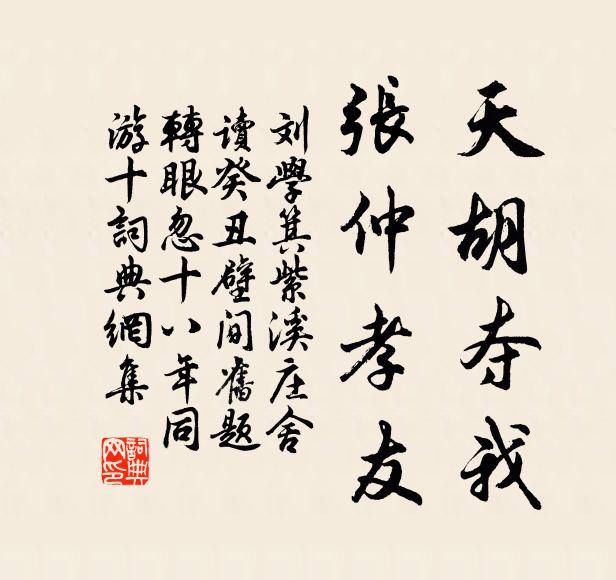 天胡夺我
張仲孝友
刘學箕紫溪庄舍
讀癸丑壁间舊题
轉眼忽十八年同
游十詞典網集
詞典
网印